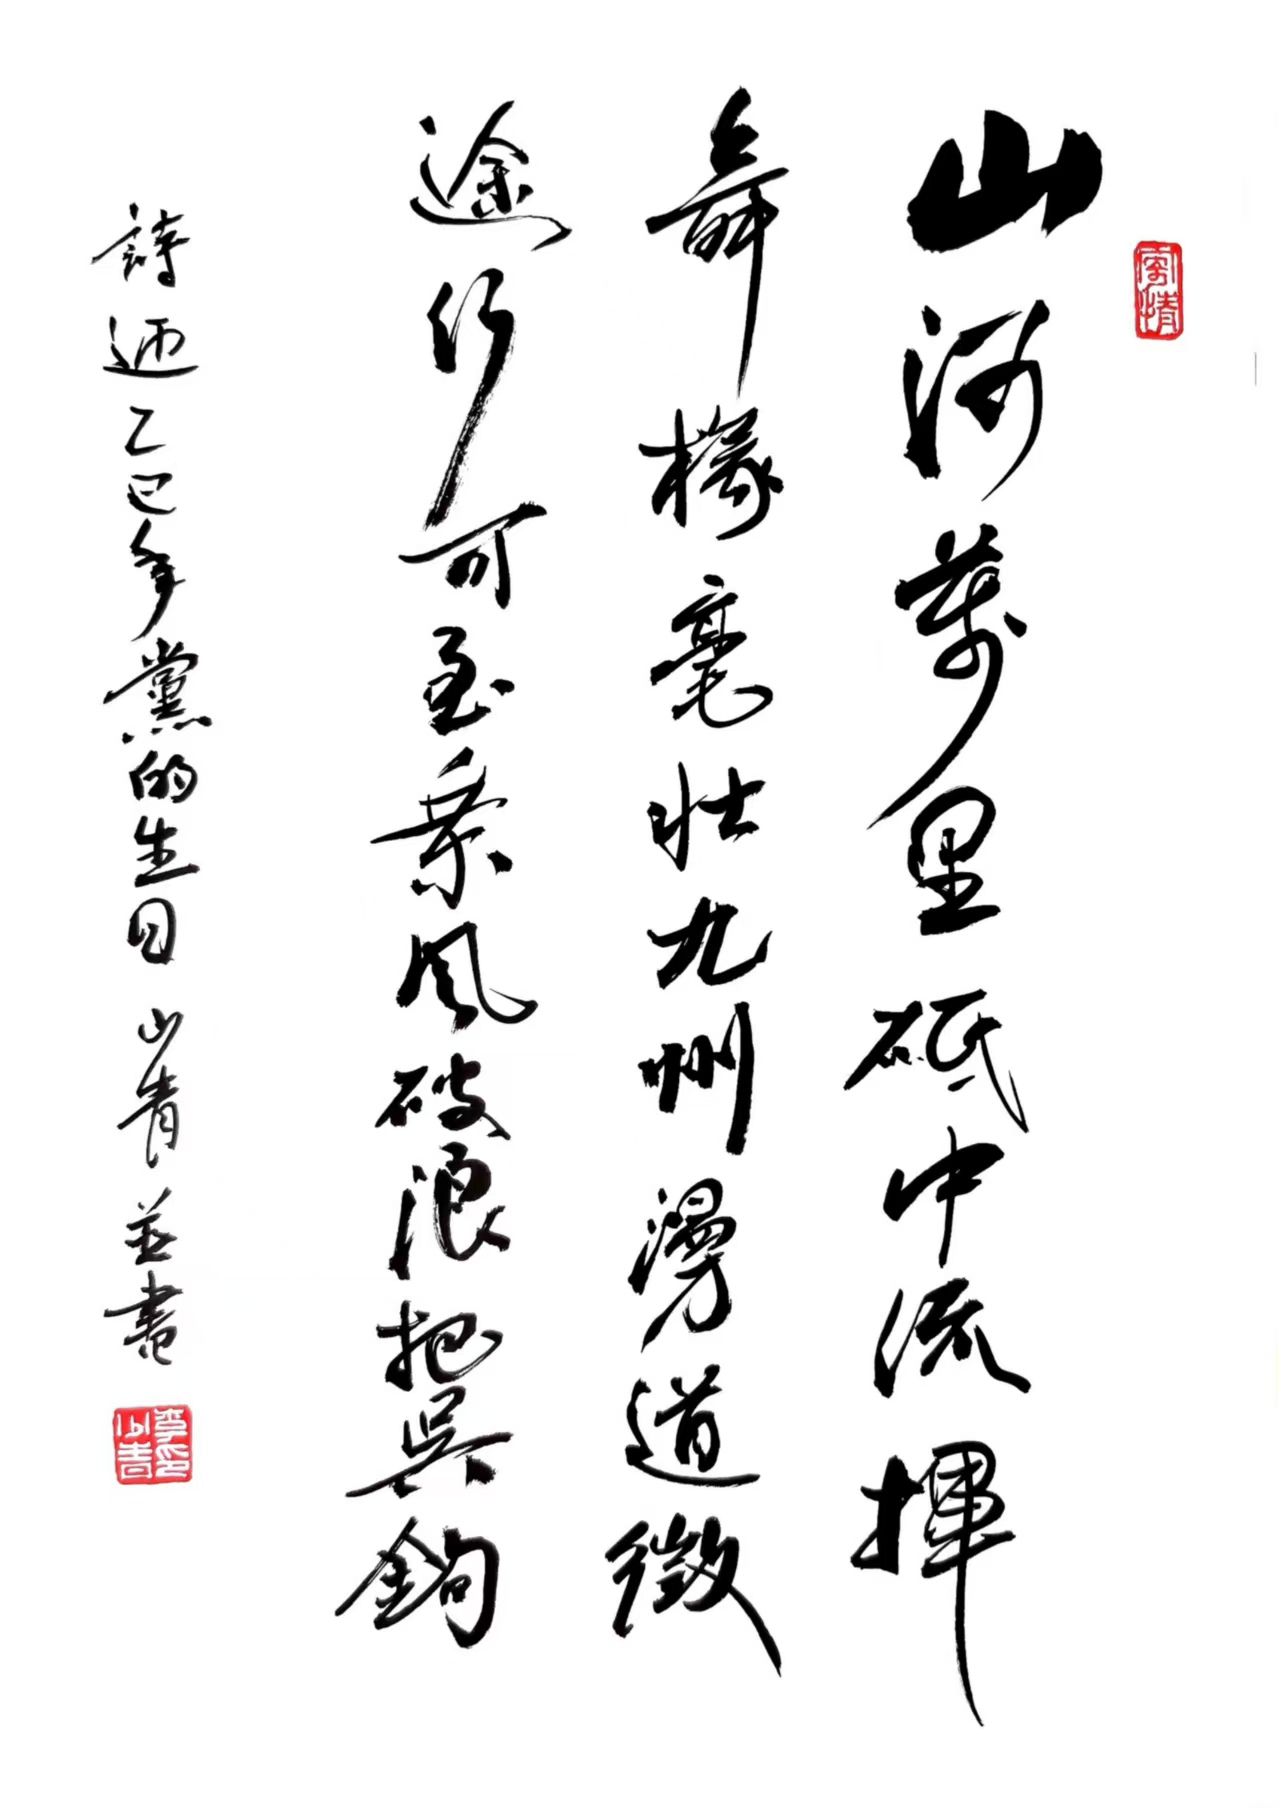 山河萬里砥中流揮
舞椽毫壯九州漫道徵
途行可至乘風破浪把吳鉤
詩迺乙巳年黨的生日 山青並書
李印山青